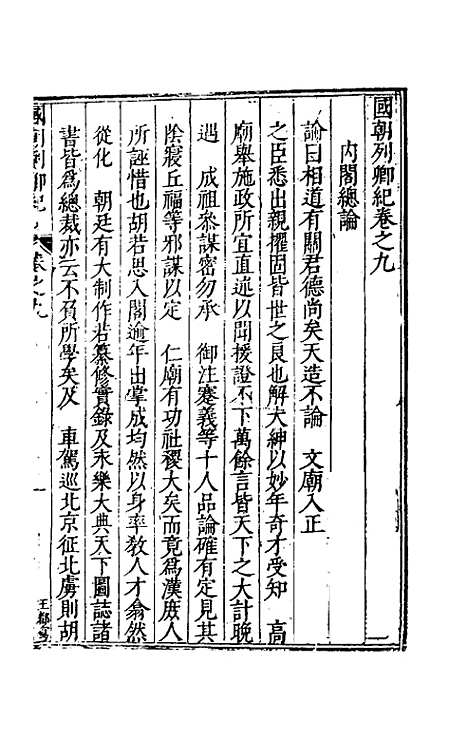 國朝列卿紀卷之九
內閣總論
論曰相道有關君德尚矣天造不論　文廟入正
之臣悉出親擢固皆世之良也解大紳以妙年奇才受知　高
廟舉施政所宜直述以聞援證不下萬餘言皆天下之大計晚
遇　成祖參謀密勿承　御注蹇義等十人品論確有定見其
陰寢丘福等邪謀以定　仁廟有功社稷大矣而竟為漢庶人
所誣惜也胡若思入閣逾年出掌成均然以身率教人才翕然
從化　朝廷有大制作若纂修實錄及永樂大典天下圖誌諸
書皆為總裁亦云不負所學矣及　車駕巡北京征北虜則胡
國朝列卿紀　卷之九